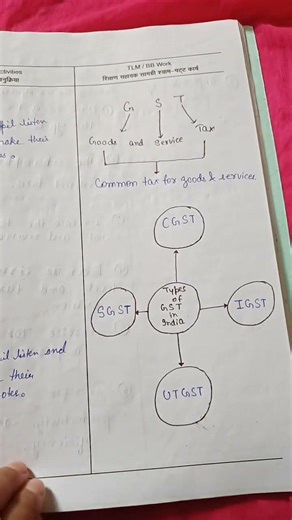 ctivities
TLM / BB Work
शिक्षण सहायक सामग्री श्याम-पट्ट कार्य
pil listen
make their
G S T
Goods and Service Tax
Common tax for goods & services
CGST
SGST
Types
of
GST
in
India
IGST
UTGST
pil listen and
their
notes.